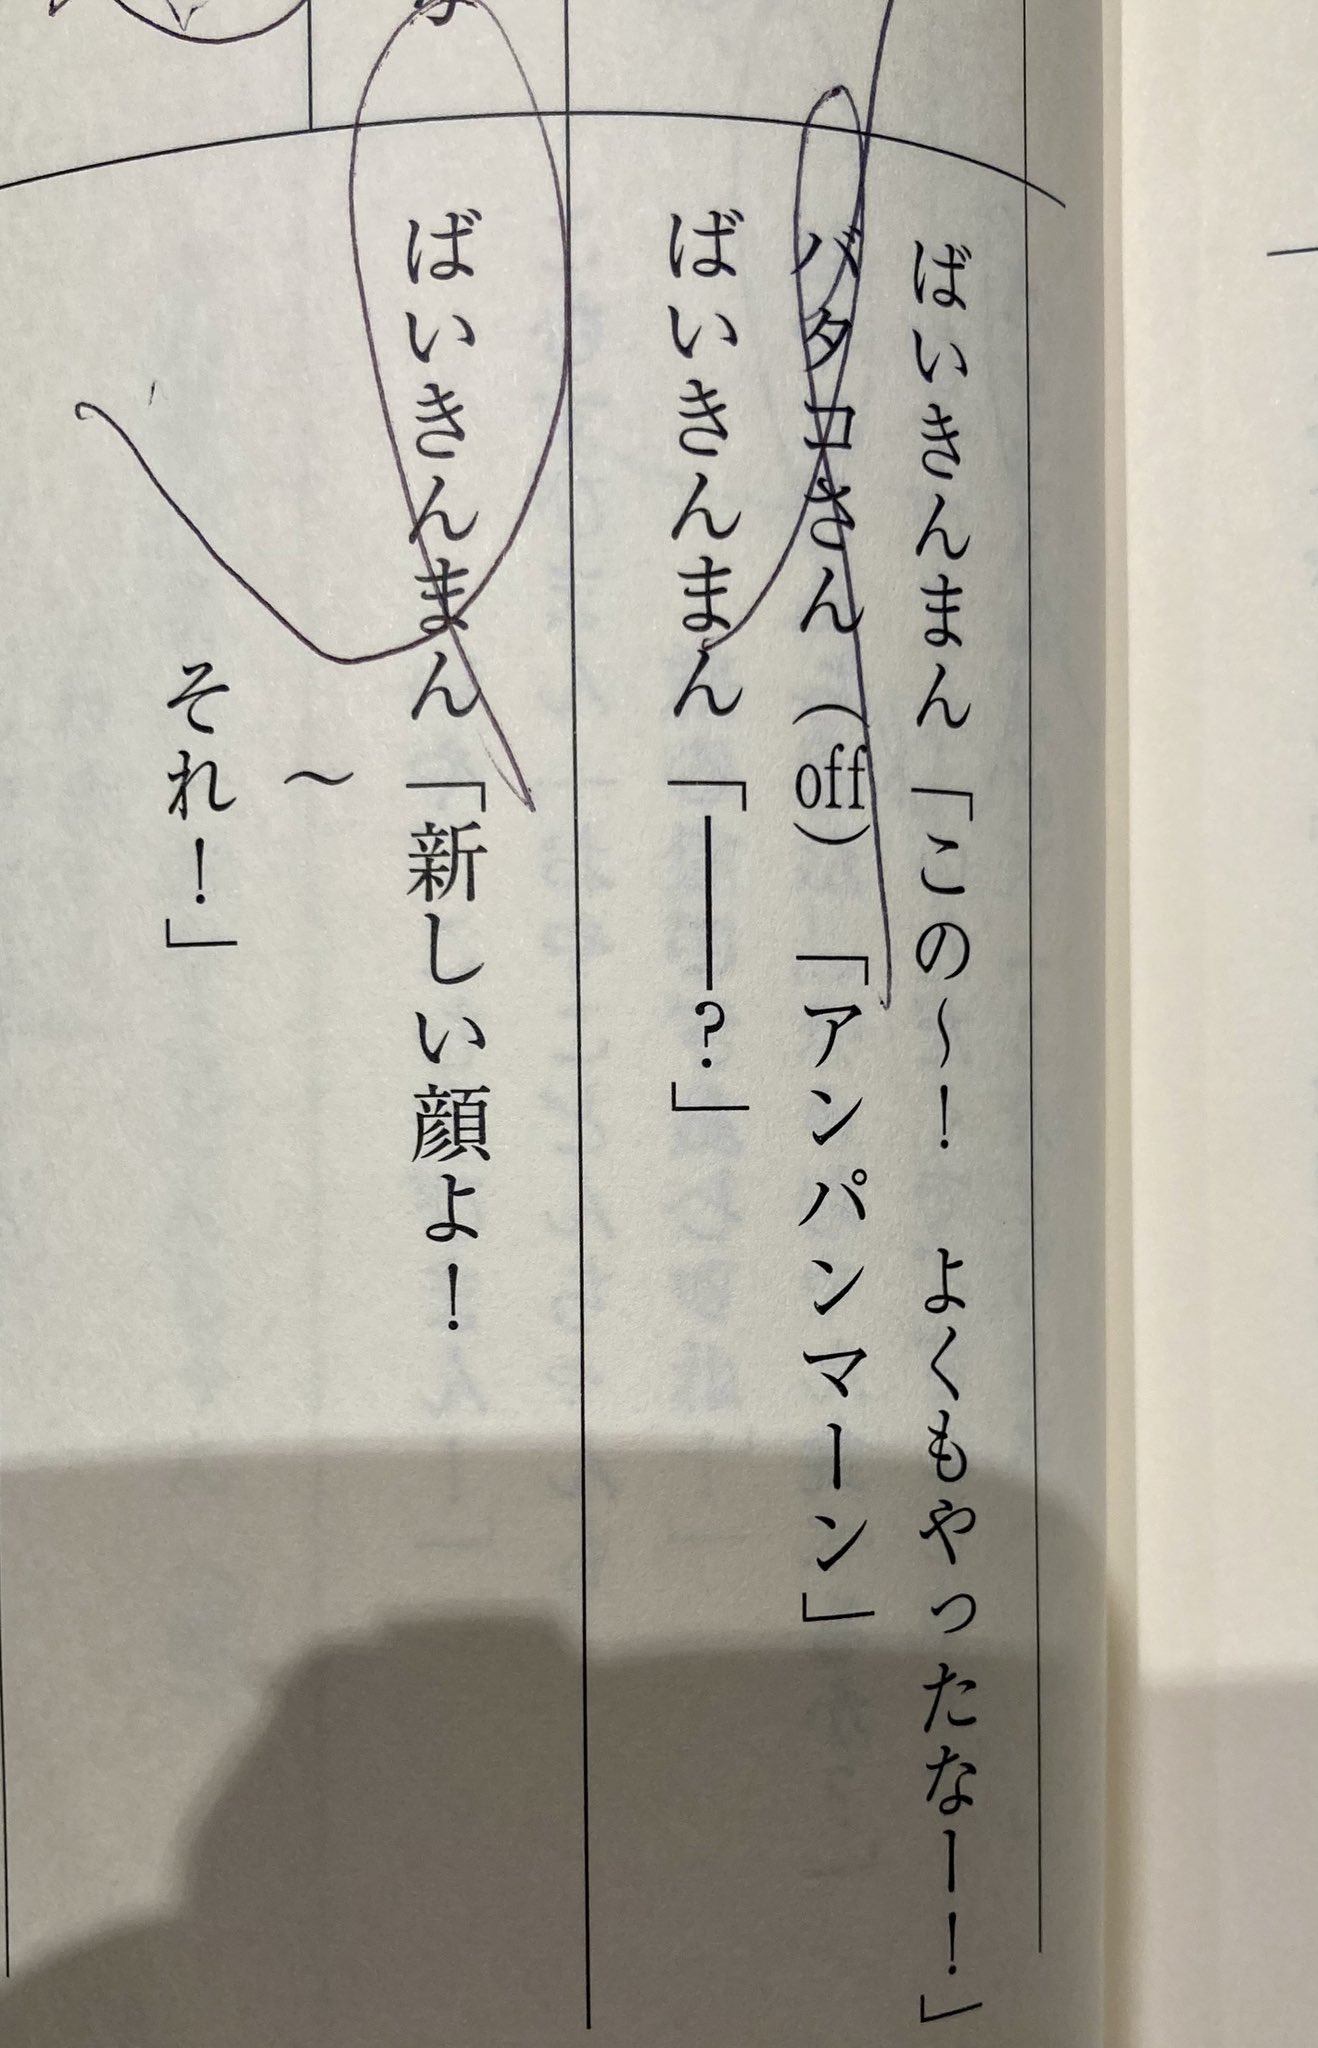 ばいきんまん「この〜！　よくもやったなー！」
バタコさん（off）「アンパンマーン」
ばいきんまん「――？」
ばいきんまん「新しい顔よ！
〜
それ！」